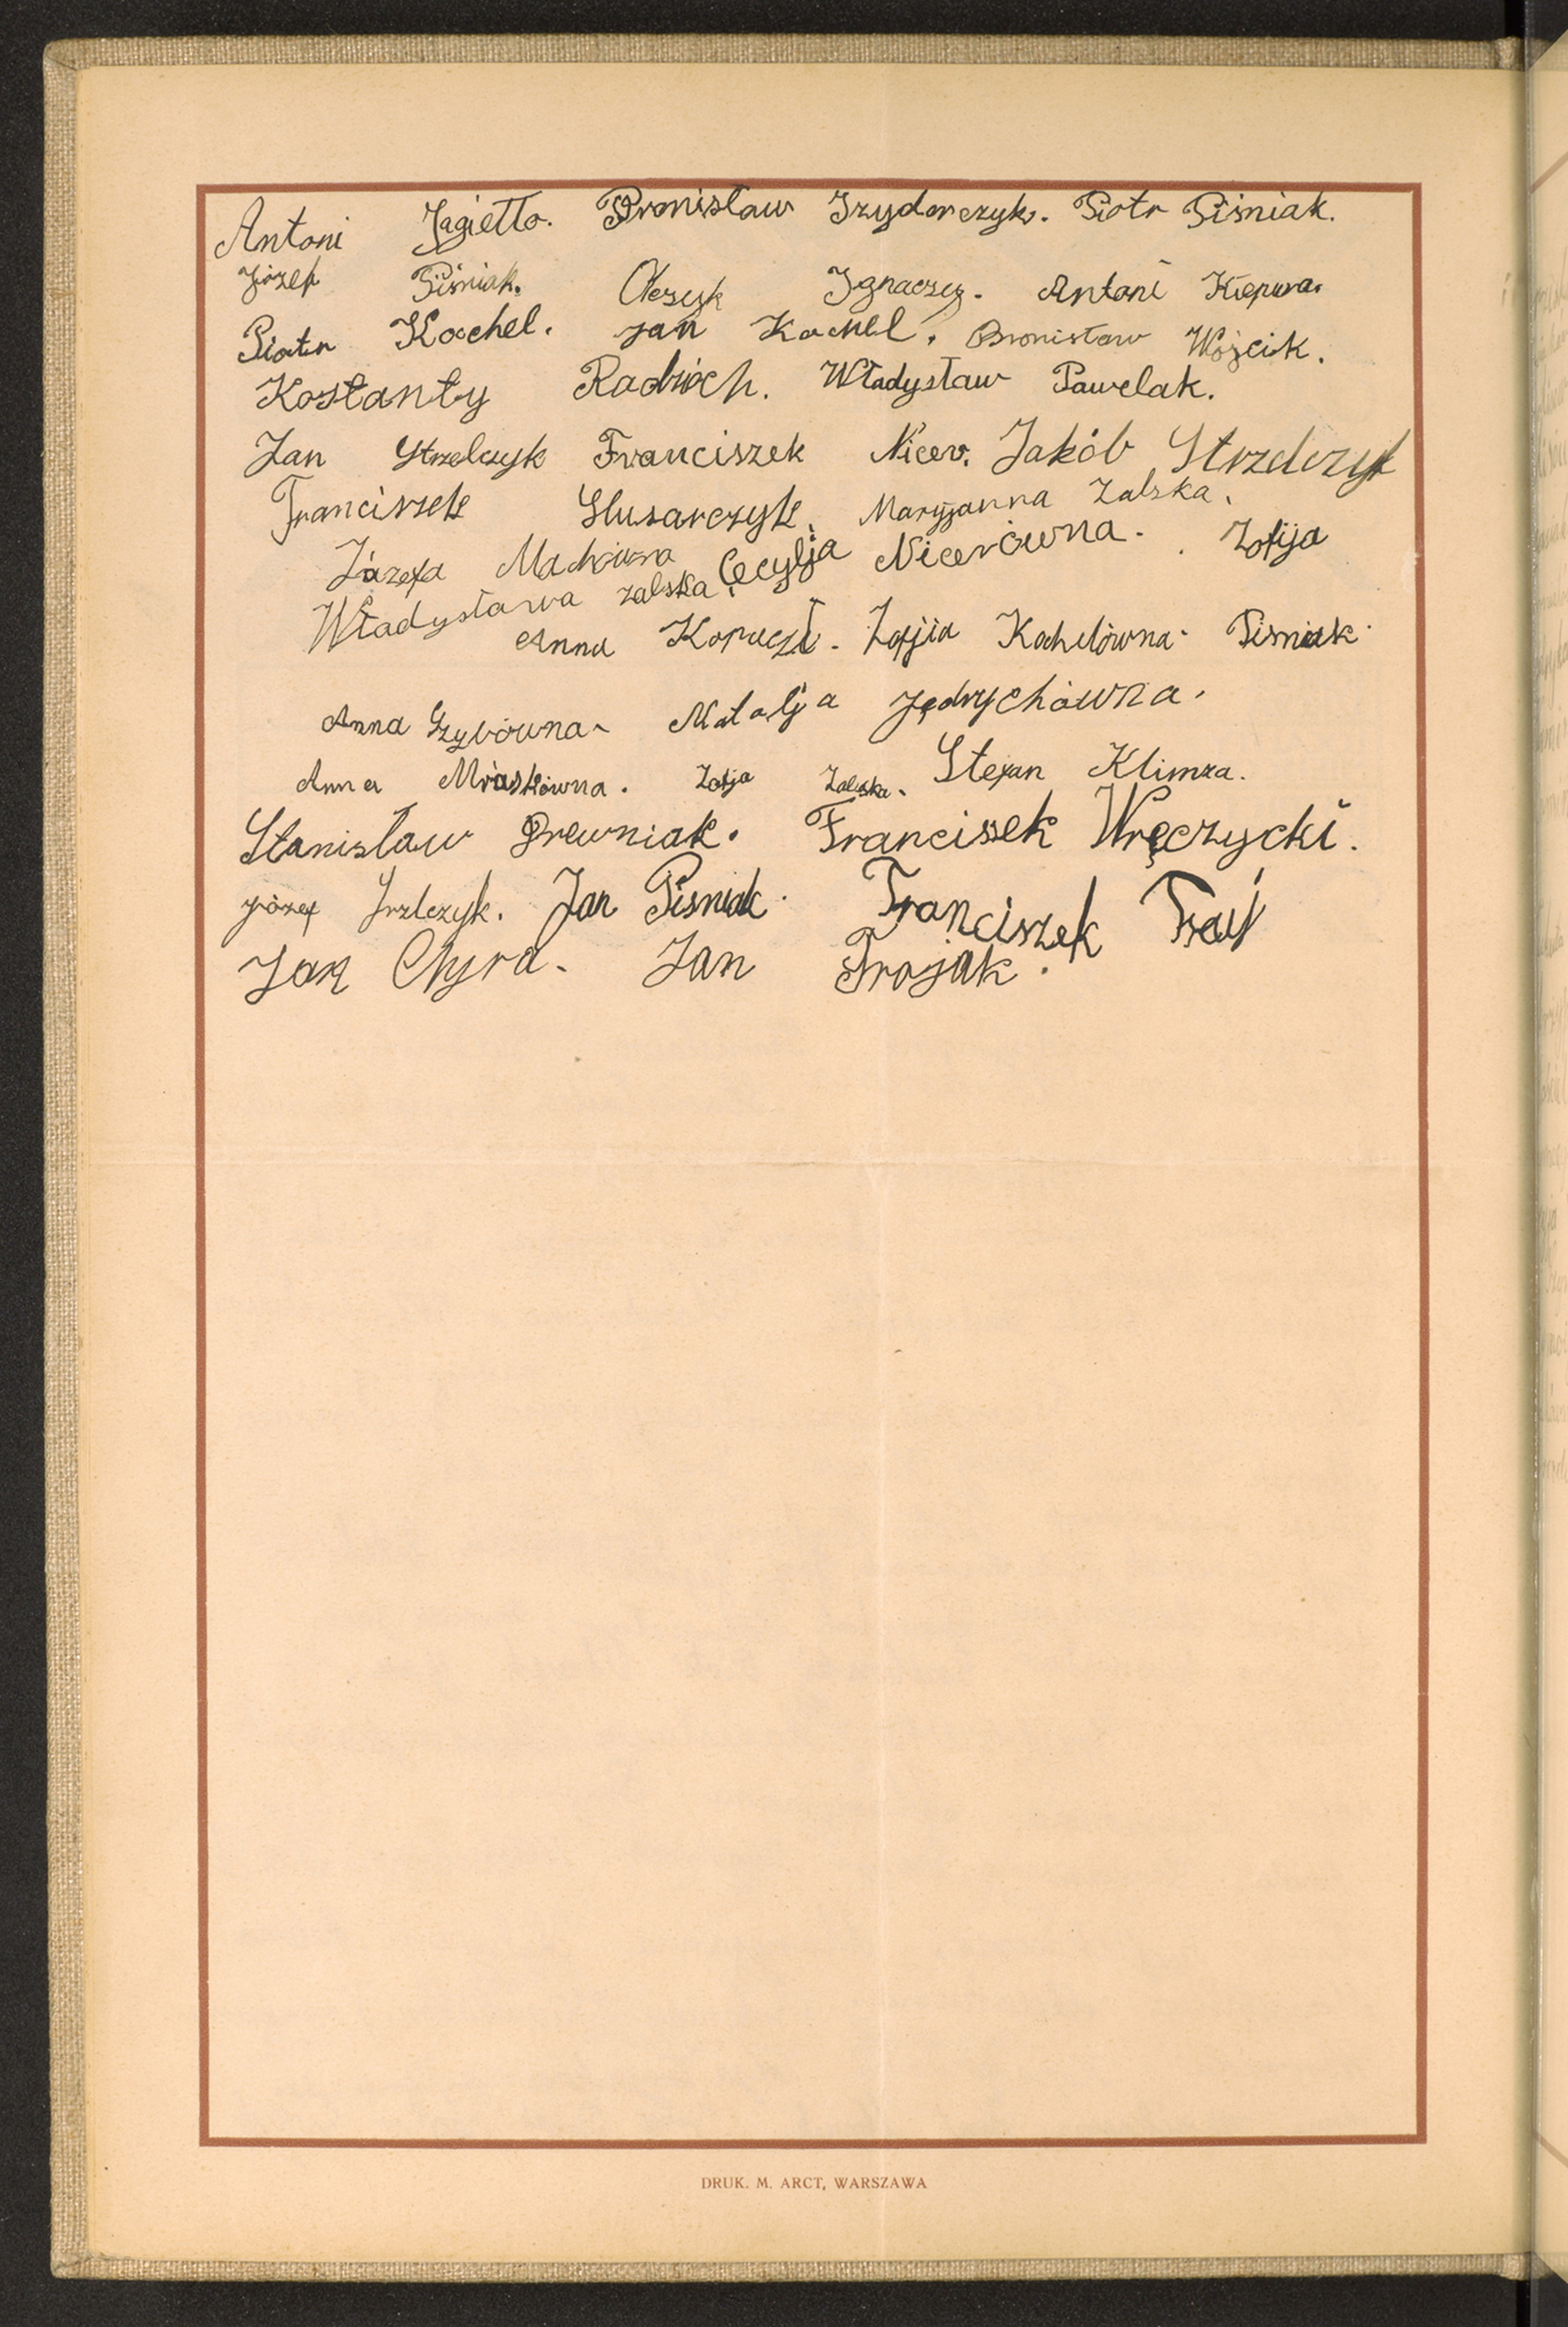 Antoni Jagiełło. Bronisław Izydorczyk. Piotr Piśniak.
Józef Piśniak. Olczyk Ignaczy. Antoni Kiepura.
Piotr Kochel. Jan Kochel. Bronisław Wójcik.
Kostanty Radzioch. Władysław Pawelak.
Jan Strzelczyk Franciszek Nicer. Jakób Strzelczyk
Franciszek Slusarczyk. Maryjanna Zalska.
Józefa Cecylja Nicerówna. Zofija
Władysława Zalska.
Anna Zofjia Kochelówna. Pismiak.
Anna Natalja Jędrychówna.
Anna Zofja Zalska. Stefan Klimza.
Stanisław Drewniak. Franciszek Wręczycki.
Józef Jan Pisniak. Franciszek
Jan Chyra. Jan Trojak.
DRUK. M. ARCT, WARSZAWA